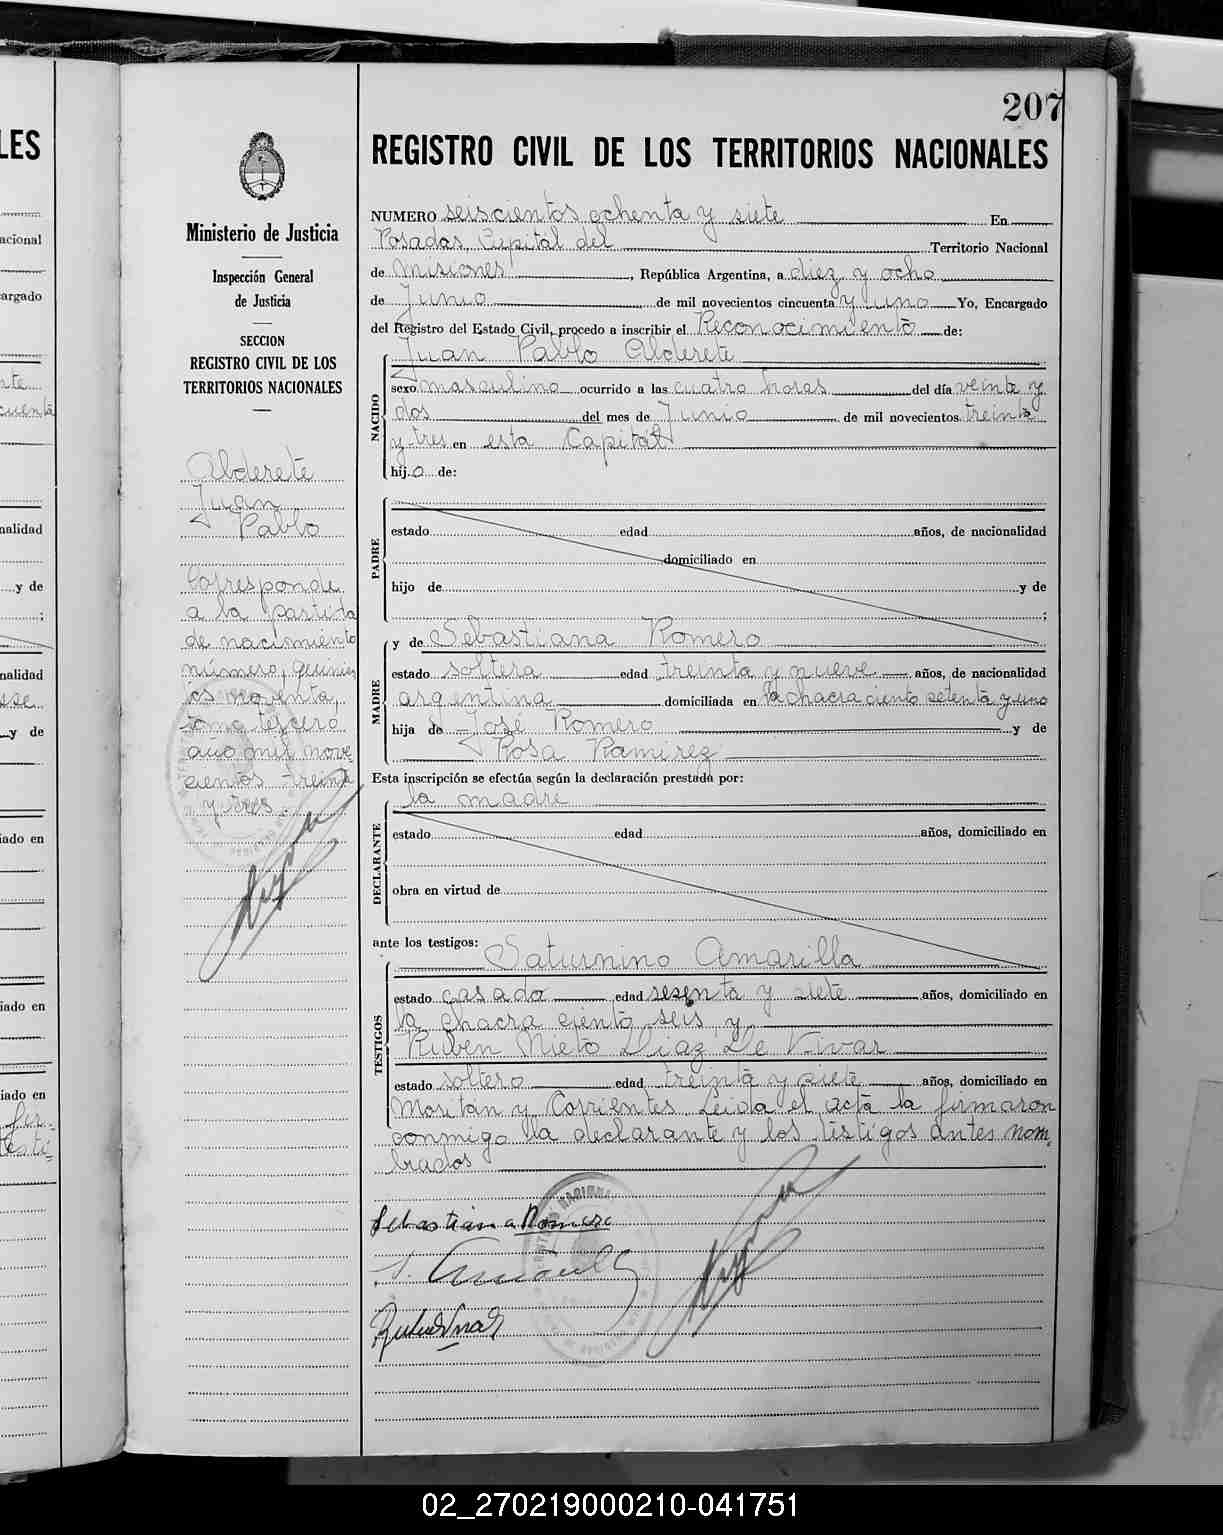 207
REGISTRO CIVIL DE LOS TERRITORIOS NACIONALES
Ministerio de Justicia
Inspección General
de Justicia
SECCION
REGISTRO CIVIL DE LOS
TERRITORIOS NACIONALES
Alderete
Juan
Pablo
Corresponde
a la partida
de nacimiento
número, quinien
tos
tomo tercero
año mil nove-
cientos treinta
y tres
NUMERO seiscientos ochenta y siete En
Posadas, Capital del Territorio Nacional
de Misiones, República Argentina, a diez y ocho
de Junio de mil novecientos cincuenta y uno Yo, Encargado
del Registro del Estado Civil, procedo a inscribir el Reconocimiento de:
Juan Pablo Alderete
NACIDO
sexo masculino ocurrido a las cuatro horas del día veinte y
dos del mes de Junio de mil novecientos treinta
y tres en esta Capital
hijo de:
PADRE
estado edad años, de nacionalidad
domiciliado en
hijo de y de
;
MADRE
y de Sebastiana Romero
estado soltera edad treinta y nueve años, de nacionalidad
argentina domiciliada en la chacra ciento setenta y uno
hija de José Romero y de
Rosa Ramirez
Esta inscripción se efectúa según la declaración prestada por:
la madre
DECLARANTE
estado edad años, domiciliado en
obra en virtud de
ante los testigos:
Saturnino Amarilla
TESTIGOS
estado casado edad sesenta y siete años, domiciliado en
la chacra ciento seis, y
Ruben Nieto Diaz De Vivar
estado soltero edad treinta y siete años, domiciliado en
Moritán y Corrientes. Leida el acta la firmaron
conmigo la declarante y los testigos antes nom-
brados
Sebastiana Romero
02_270219000210-041751